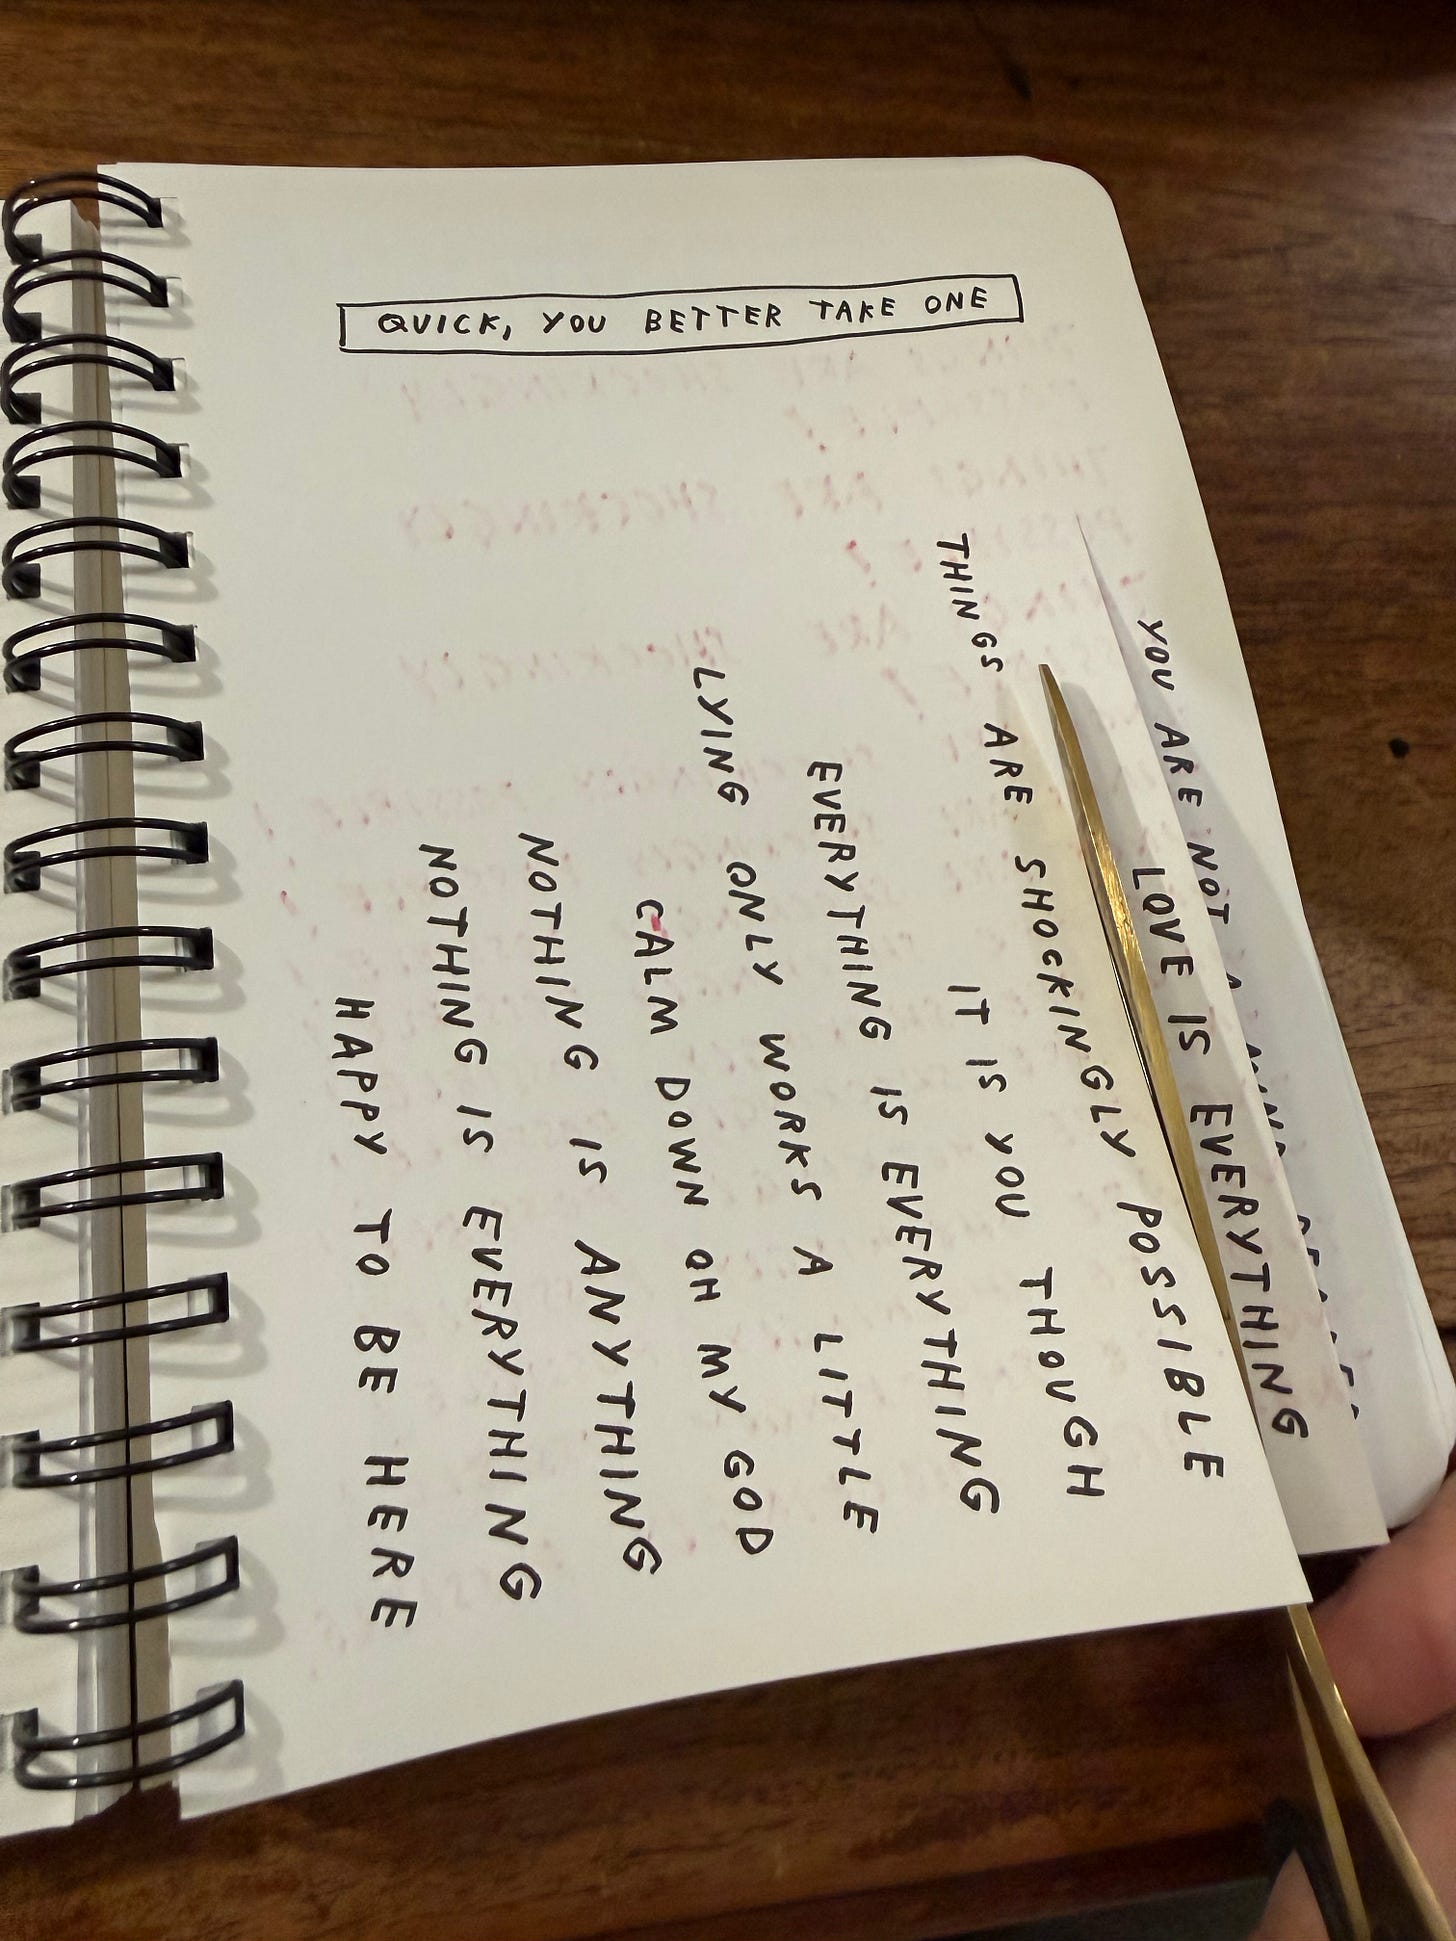 QUICK, YOU BETTER TAKE ONE
YOU ARE NOT A
LOVE IS EVERYTHING
THINGS ARE SHOCKINGLY POSSIBLE
IT IS YOU THOUGH
EVERYTHING IS EVERYTHING
LYING ONLY WORKS A LITTLE
CALM DOWN OH MY GOD
NOTHING IS ANYTHING
NOTHING IS EVERYTHING
HAPPY TO BE HERE